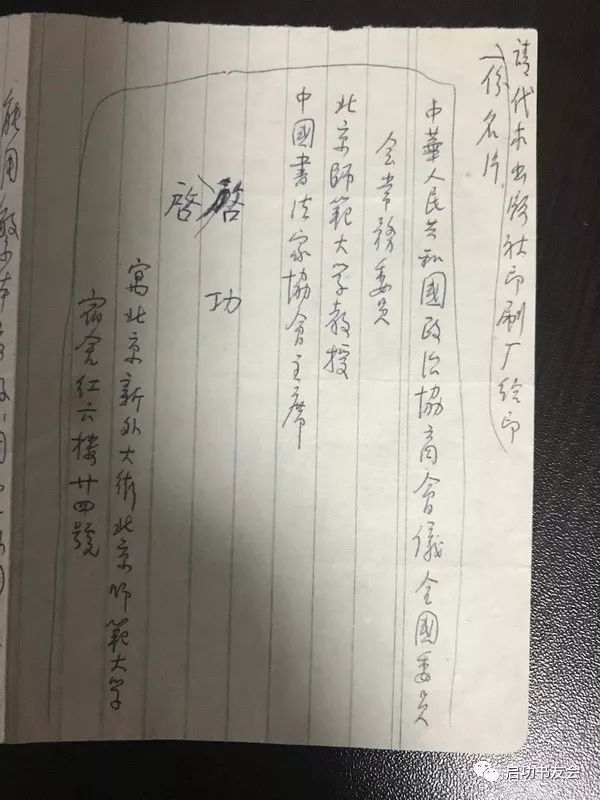 請代求出版社印刷厂给印
一份名片
中華人民共和國政治協商會議全國委員
会常務委員
北京師範大学教授
中國書法家協會主席
啓功
啓
寓北京新外大街北京师範大学
宿舍红云楼廿四號
能用
启功书友会